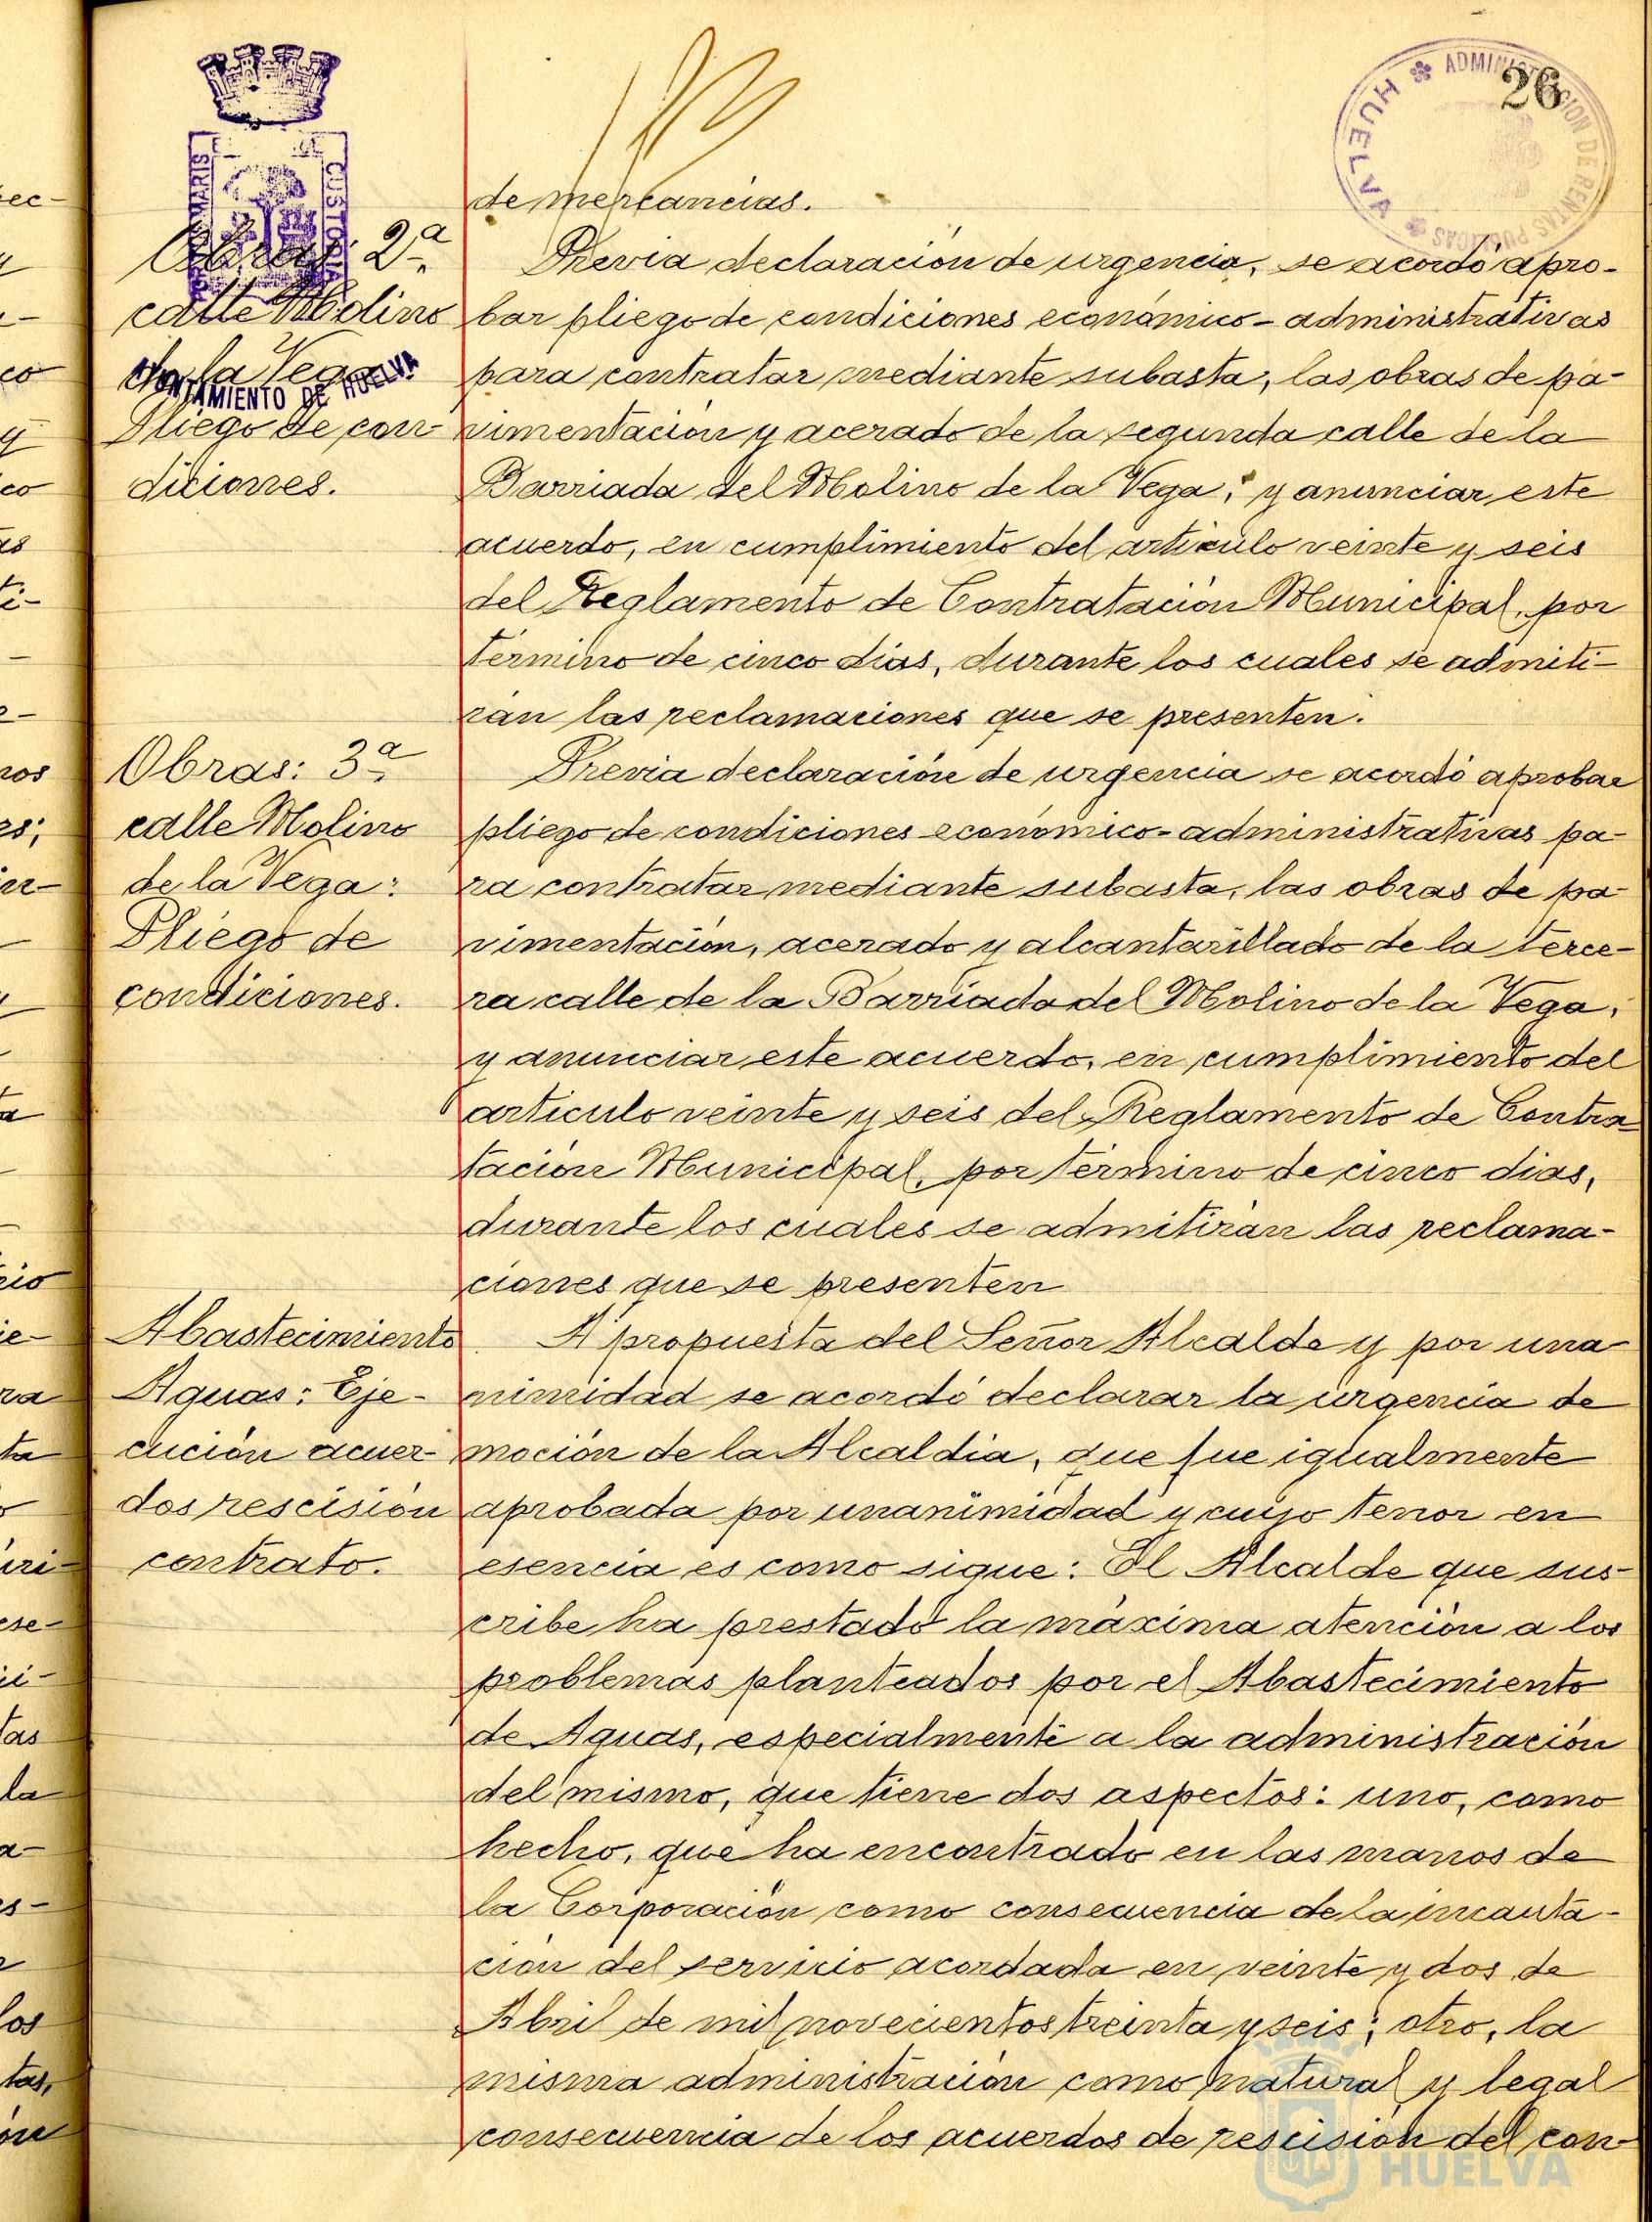 26
ADMINISTRACION DE RENTAS PUBLICAS
HUELVA
MARIS
CUSTODIA
AYUNTAMIENTO DE HUELVA
de mercancias.
Obras: 2ª
calle Molino
de la Vega:
Pliego de con-
diciones.
Previa declaración de urgencia, se acordó apro-
bar pliego de condiciones económico-administrativas
para contratar mediante subasta, las obras de pa-
vimentación y acerado de la segunda calle de la
Barriada del Molino de la Vega; y anunciar este
acuerdo, en cumplimiento del artículo veinte y seis
del Reglamento de Contratación Municipal, por
término de cinco dias, durante los cuales se admiti-
rán las reclamaciones que se presenten.
Obras: 3ª
calle Molino
de la Vega:
Pliego de
condiciones.
Previa declaración de urgencia se acordó aprobar
pliego de condiciones económico-administrativas pa-
ra contratar mediante subasta, las obras de pa-
vimentación, acerado y alcantarillado de la terce-
ra calle de la Barriada del Molino de la Vega,
y anunciar este acuerdo, en cumplimiento del
artículo veinte y seis del Reglamento de Contra-
tación Municipal, por término de cinco dias,
durante los cuales se admitirán las reclama-
ciones que se presenten
Abastecimiento
Aguas: Eje-
cución acuer-
dos rescisión
contrato.
A propuesta del Señor Alcalde y por una
nimidad se acordó declarar la urgencia de
moción de la Alcaldia, que fue igualmente
aprobada por unanimidad y cuyo tenor en
esencia es como sigue: El Alcalde que sus-
cribe ha prestado la máxima atención a los
problemas planteados por el Abastecimiento
de Aguas, especialmente a la administración
del mismo, que tiene dos aspectos: uno, como
hecho, que ha encontrado en las manos de
la Corporación como consecuencia de la incauta-
ción del servicio acordada en veinte y dos de
Abril de mil novecientos treinta y seis; otro, la
misma administración como natural y legal
consecuencia de los acuerdos de rescisión del con-
HUELVA